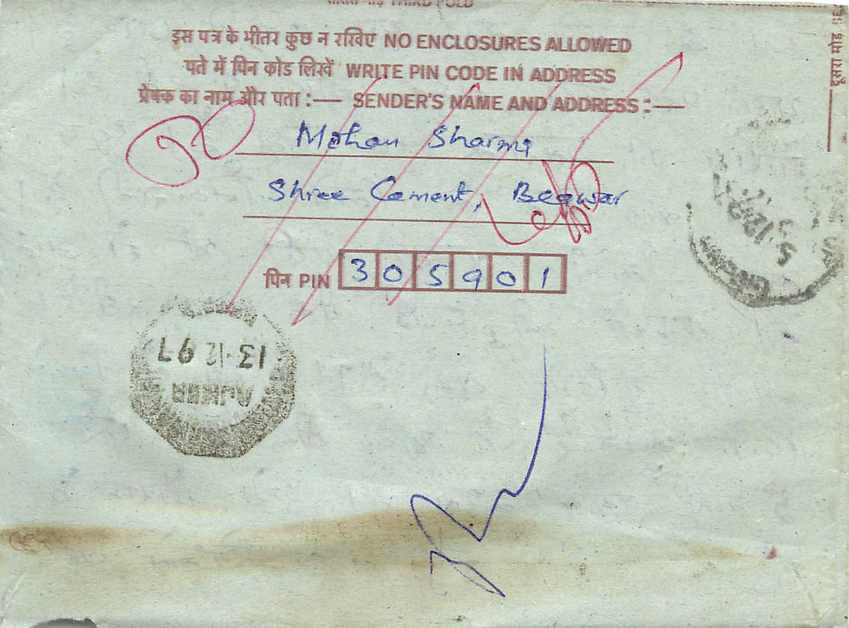 THIRD FOLD
इस पत्र के भीतर कुछ न रखिए NO ENCLOSURES ALLOWED
पते में पिन कोड लिखें WRITE PIN CODE IN ADDRESS
प्रेषक का नाम और पता :— SENDER'S NAME AND ADDRESS :—
Mohan Sharma
Shree Cement, Beawar
पिन PIN 305901
दूसरा मोड़
5-12-97
13-12-97
AJMER